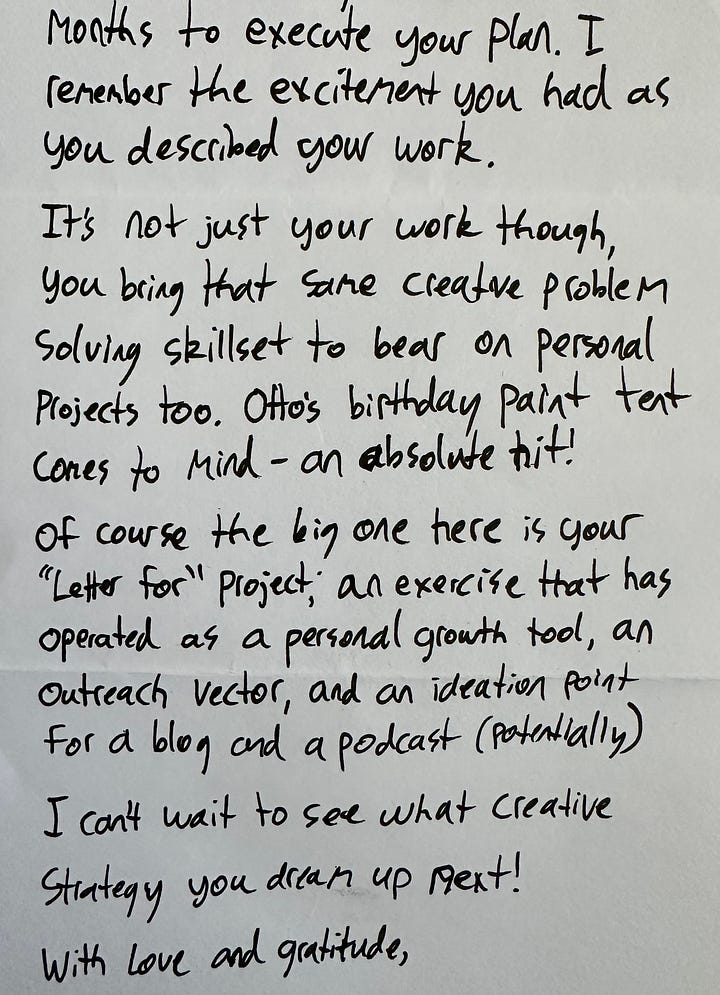 Months to execute your plan. I
remember the excitement you had as
you described your work.
It's not just your work though,
you bring that same creative problem
Solving skillset to bear on personal
Projects too. Otto's birthday paint tent
comes to mind - an absolute hit!
Of course the big one here is your
"Letter for" Project; an exercise that has
operated as a personal growth tool, an
outreach vector, and an ideation point
for a blog and a podcast (potentially)
I can't wait to see what creative
Strategy you dream up next!
With love and gratitude,